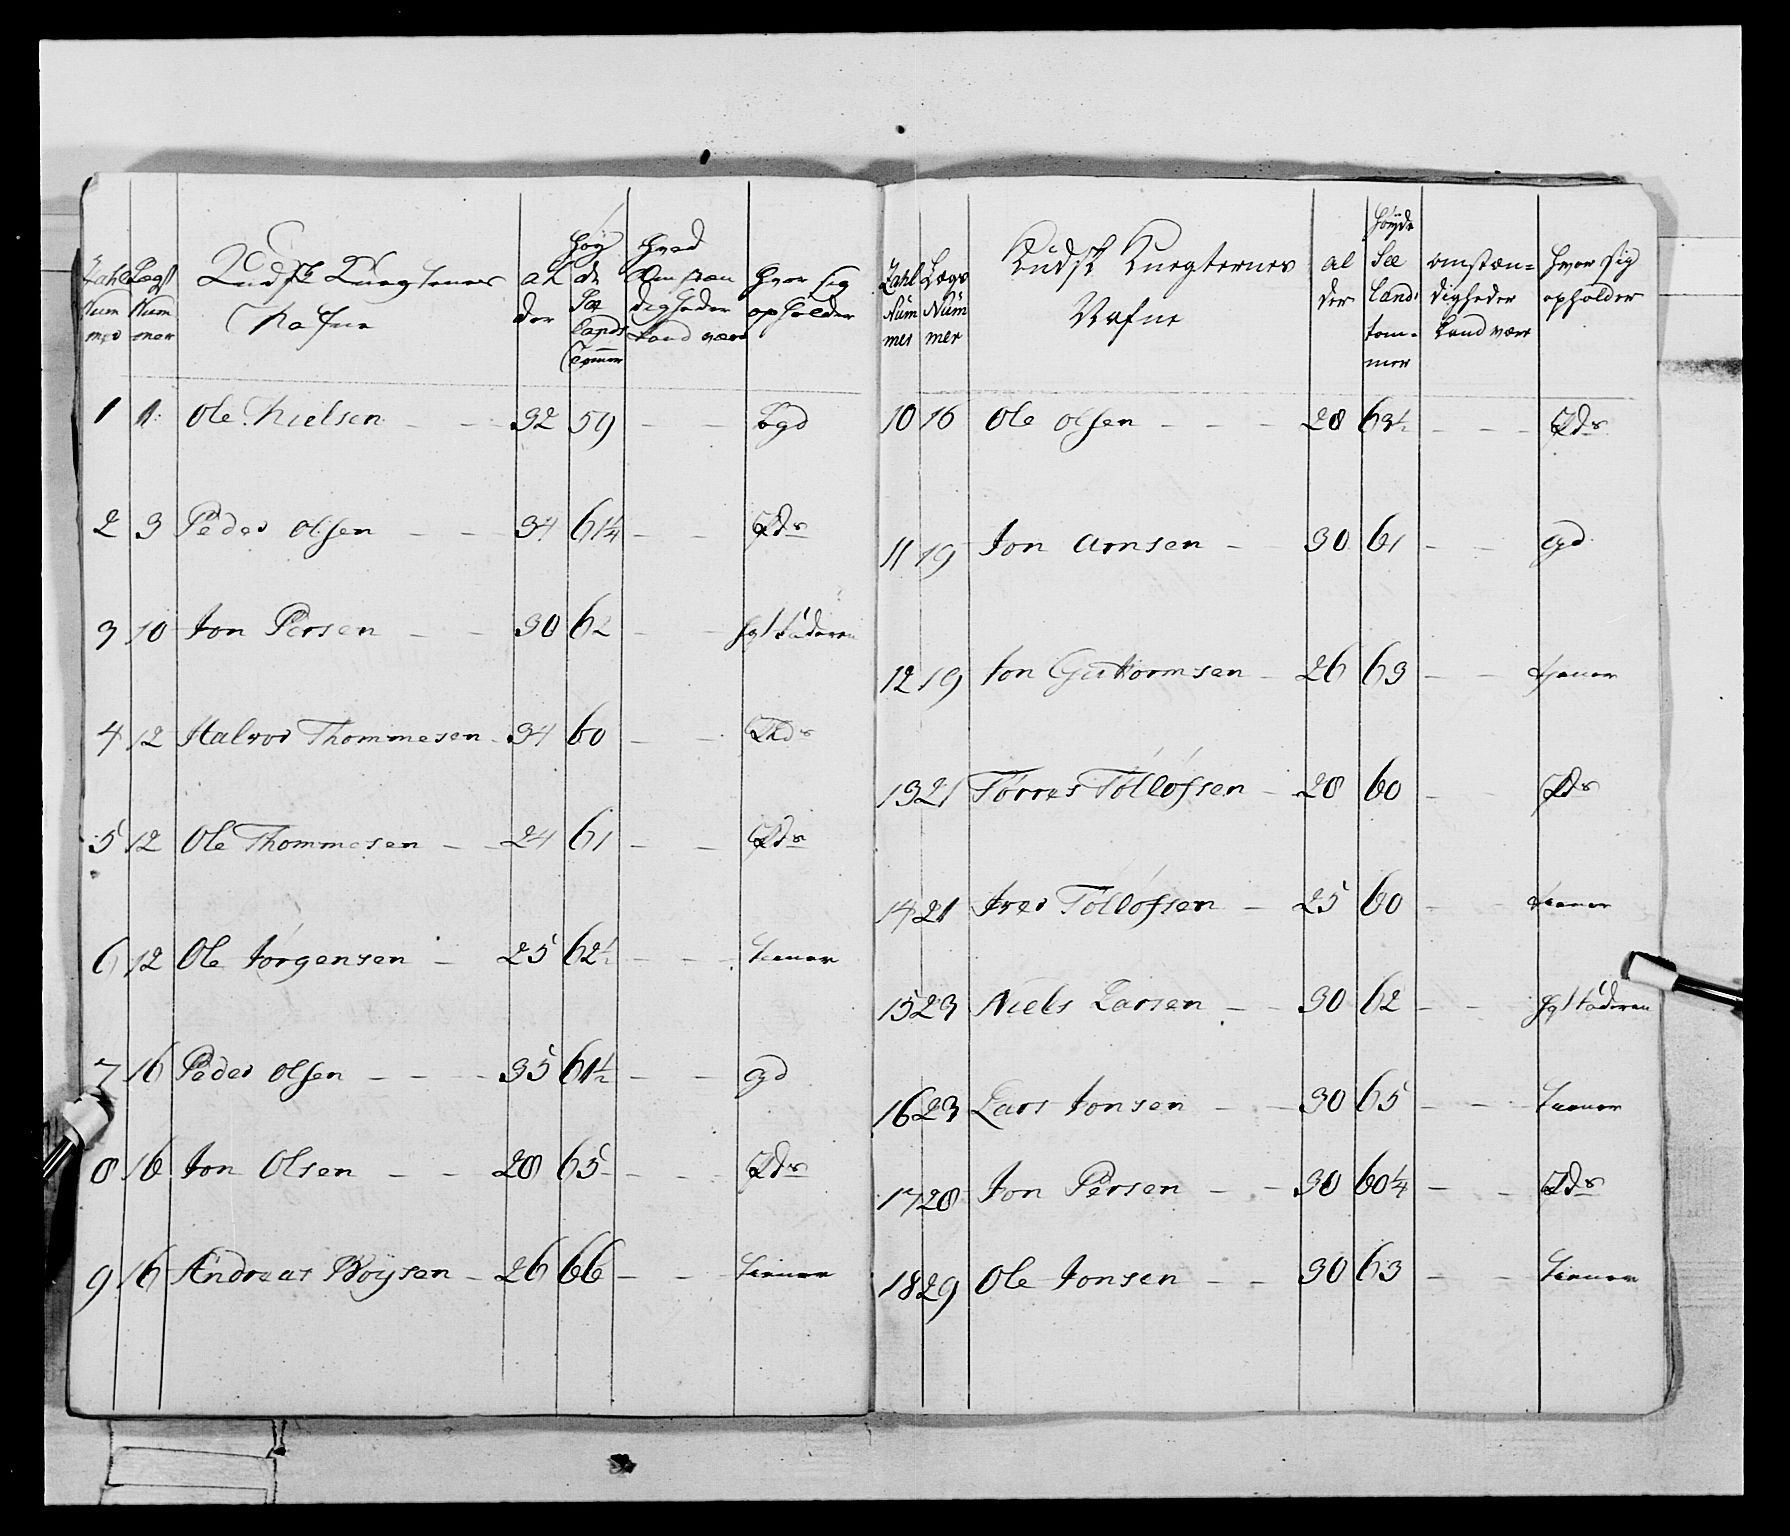 Zahl Num mer
Lægs Num mer
Kudsk Knegternes Nafne
al der
Høy de See lands Tommer
Hved Omstæn digheder Land værn
Hvor sig opholder
1 1 Ole Nielsen - - 32 59 - - bgd
2 3 Peder Olsen - - 34 61¼ - -
3 10 Jon Persen - - 30 62 - -
4 12 Halvor Thommesen - 34 60 - -
5 12 Ole Thommesen - - 24 61 - -
6 12 Ole Jørgensen - 25 62½ - - - tiener
7 16 Peder Olsen - - - 35 61½ - - gd
8 16 Jon Olsen - - 28 65 - - -
9 16 Andreas Bøysen - 26 66 - - tiener
Zahl Num mer
Lægs Num mer
Kudsk Knegternes Nafne
al der
Høyde See Lands tom- mer
omstæn- digheder Land værn
Hvor sig opholder
10 16 Ole Olsen - - - 28 63½ - - -
11 19 Jon Arnsen - - 30 61 - - gd
12 19 Jon Guttormsen - 26 63 - - tjener
13 21 Tørres Tølløfsen - 28 60 - -
14 21 Iver Tølløfsen - 25 60 - - tiener
15 23 Niels Larsen - - 30 62 - -
16 23 Lars Jonsen - - 30 65 - - tiener
17 28 Jon Persen - - 30 60¼ - -
18 29 Ole Jonsen - - 30 63 - - tiener